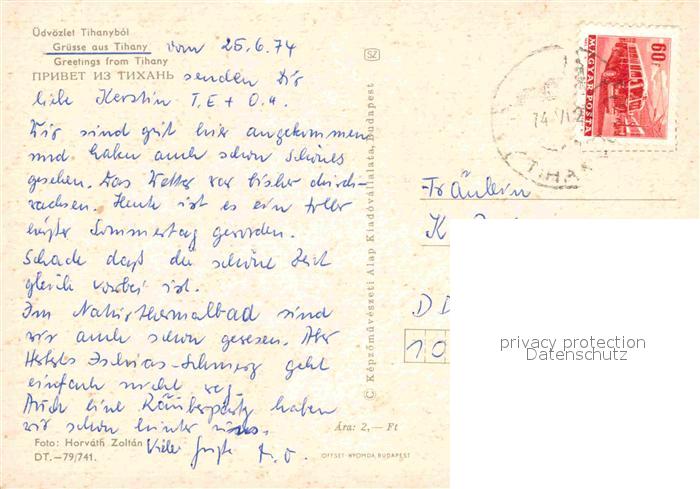 Üdvözlet Tihanyból
Grüsse aus Tihany vom 25.6.74
Greetings from Tihany
ПРИВЕТ ИЗ ТИХАНЬ senden Dir
liebe Kerstin T.E + O.H.
Wir sind gut hier angekommen
und haben auch schon schönes
gesehen. Das Wetter war bisher durch-
wachsen. Heute ist es ein toller
heißer Sommertag geworden.
Schade daß die schöne Zeit
gleich vorbei ist.
Im Naturthermalbad sind
wir auch schon gewesen. Aber
Ischias-Schmerz geht
einfach nicht weg.
Auch eine Räuberparty haben
wir schon hinter uns.
Viele Grüße
Foto: Horváth Zoltán
DT.—79/741.
SZ
© Képzőművészeti Alap Kiadóvállalata, Budapest
Ára: 2,— Ft
OFFSET-NYOMDA, BUDAPEST
60f
MAGYAR POSTA
74 VI 2
TIHAN
Fräulein
K
DD
10
privacy protection
Datenschutz